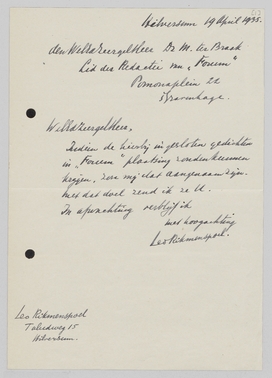 Hilversum 19 April 1935.
den WelEdZeergelHeer Dr M. ter Braak
Lid der Redactie van „Forum"
Pomonaplein 22
s'Gravenhage.
WelEdZeergelHeer,
Indien de hierbij ingesloten gedichten
in „Forum" plaatsing zouden kunnen
krijgen, zou mij dat aangenaam zijn.
Met dat doel zend ik ze U.
In afwachting verblijf ik
met hoogachting
Leo Rikmenspoel.
Leo Rikmenspoel
15
Hilversum.